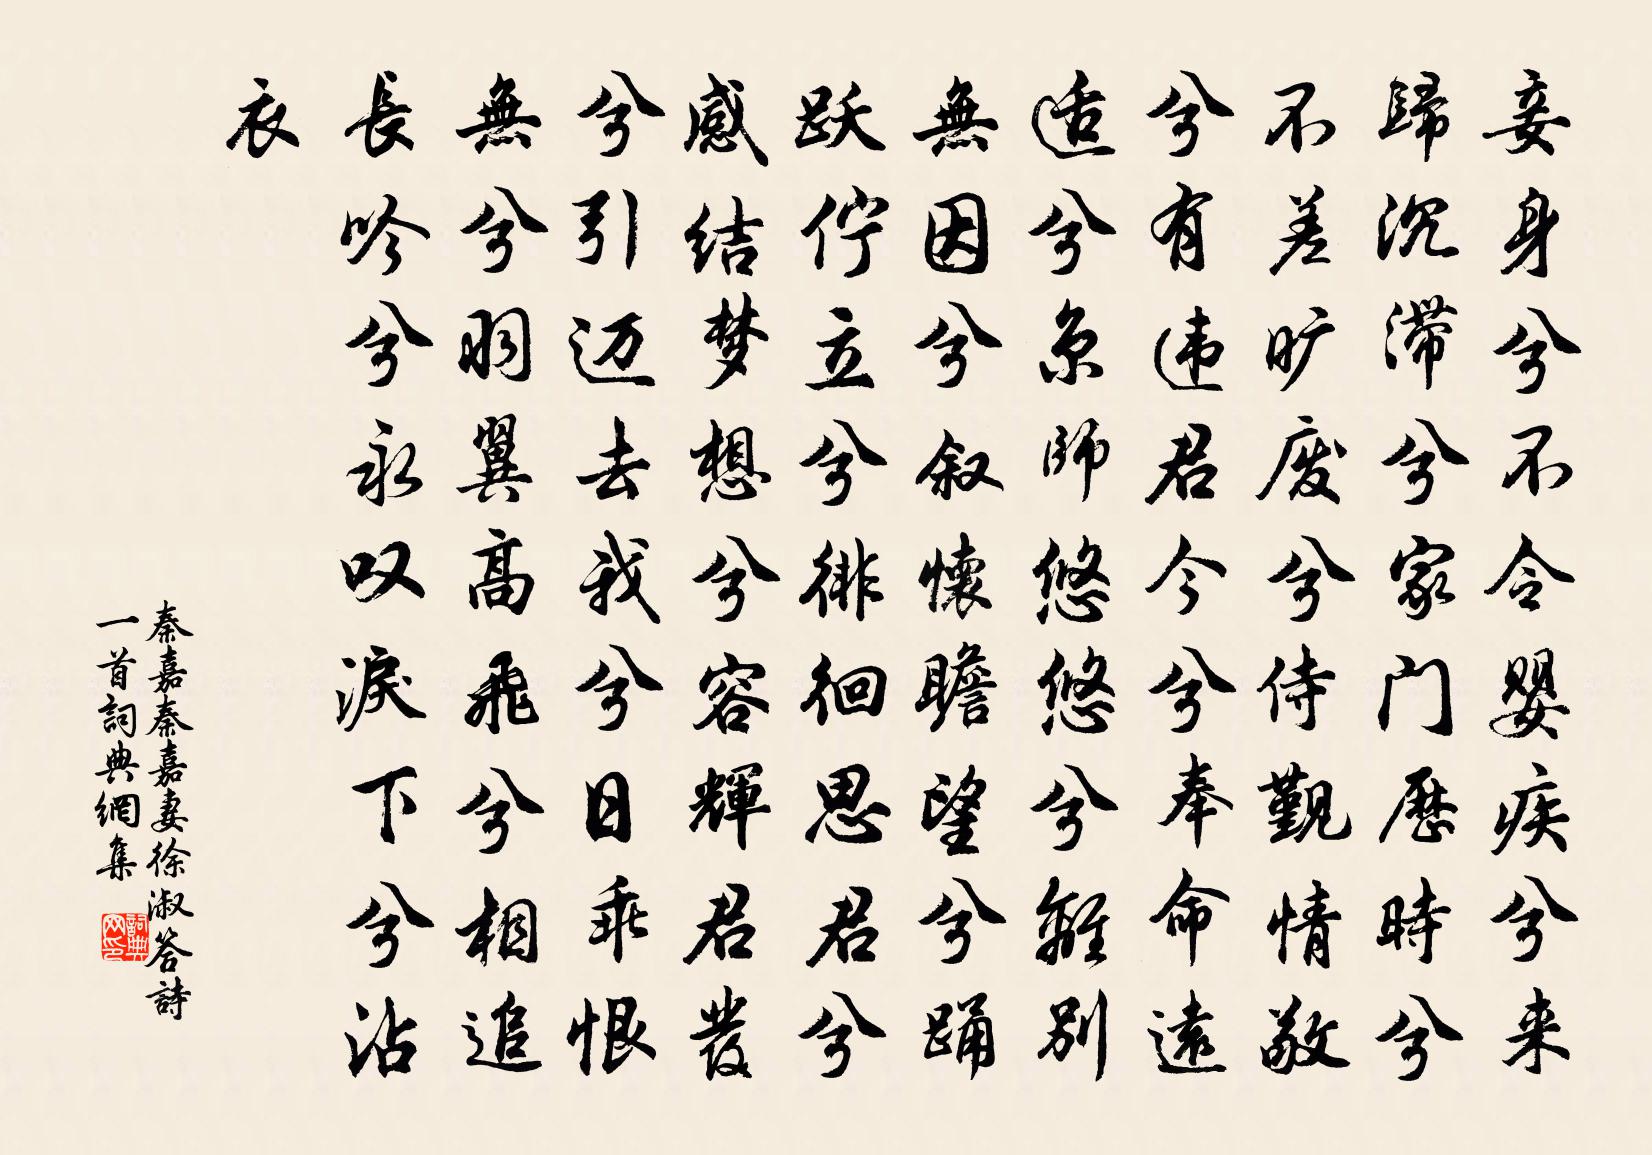 妾身兮不令婴疾兮来
歸沉滞兮家门歷時兮
不差旷废兮侍覲情敬
兮有违君今兮奉命遠
适兮京師悠悠兮離别
無因兮叙懷瞻望兮踊
跃佇立兮徘徊思君兮
感结梦想兮容輝君發
兮引迈去我兮日乖恨
無兮羽翼高飛兮相追
長吟兮永叹淚下兮沾
衣
秦嘉秦嘉妻徐淑答詩
一首詞典網集
詞典
网印